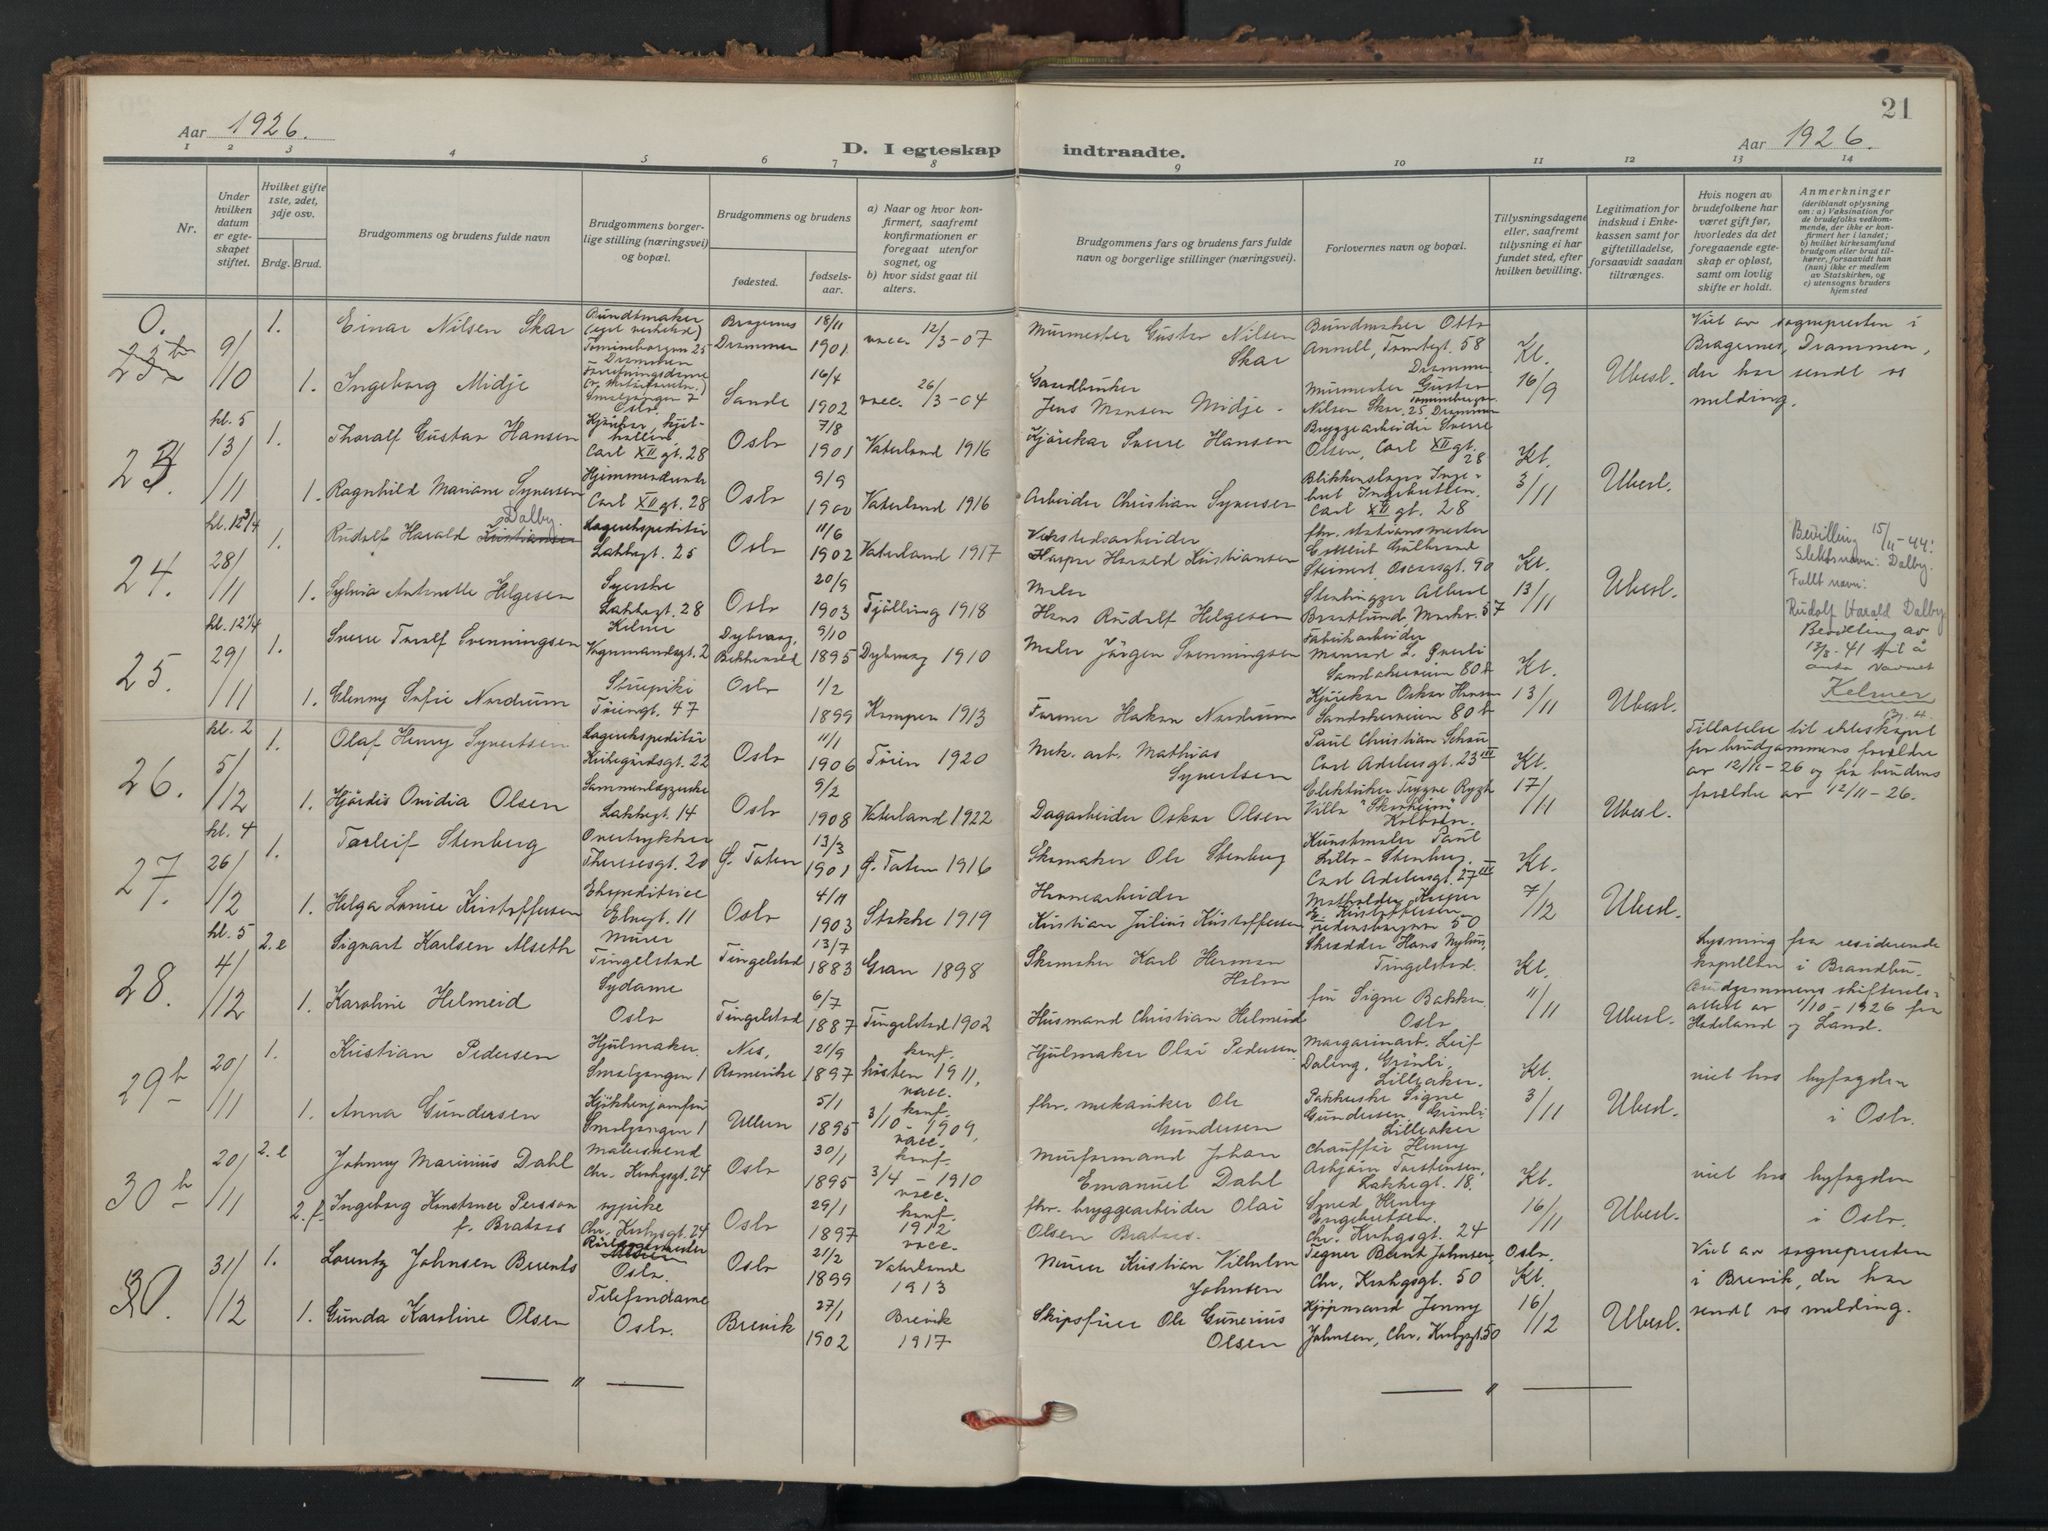 21
Aar 1926.
D. I egteskap indtraadte.
Aar 1926.
1 2 3 4 5 6 7 8 9 10 11 12 13 14
Nr.
Under hvilken datum er egteskapet stiftet.
Hvilket gifte 1ste, 2det, 3dje osv.
Brdg. Brud.
Brudgommens og brudens fulde navn
Brudgommens borgerlige stilling (næringsvei) og bopæl.
Brudgommens og brudens
fødested.
fødselsaar.
a) Naar og hvor konfirmert, saafremt konfirmationen er foregaat utenfor sognet, og
b) hvor sidst gaat til alters.
Brudgommens fars og brudens fars fulde navn og borgerlige stillinger (næringsvei).
Forlovernes navn og bopæl.
Tillysningsdagene eller, saafremt tillysning ei har fundet sted, efter hvilken bevilling.
Legitimation for indskud i Enkekassen samt for giftetilladelse, forsaavidt saadan tiltrænges.
Hvis nogen av brudefolkene har været gift før, hvorledes da det foregaaende egteskap er opløst, samt om lovlig skifte er holdt.
Anmerkninger
(deriblandt oplysning om: a) Vaksination for de brudefolks vedkommende, der ikke er konfirmert her i landet;
b) hvilket kirkesamfund brudgom eller brud tilhører, forsaavidt han (hun) ikke er medlem av Statskirken, og
c) utensogns bruders hjemsted
0.
9/10
1. Einar Nilsen Skar
Bundtmaker
Bragernes
Drammen
18/11
1901
vacc. 12/3-07
Murmester Gustav Nilsen
Skar
Bundtmaker Otto
58
Drammen
Kl.
16/9
Ubesl.
Viet av sognepresten i
Bragernes, Drammen,
der har sendt os
melding.
1. Ingeborg Midje
Oslo
Sande
16/4
1902
vacc. 26/3-04
Gaardbruker
Jens Hansen Midje.
Murmester Gustav
Nilsen Skar, 25, Drammen
23.
kl. 5
13/11
1. Thoralf Gustav Hansen
Carl XII gt. 28
Oslo
7/8
1901
Vaterland 1916
Kjørekar Sverre Hansen
Bryggearbeider Sverre
Olsen, Carl XII gt.
28
Kl.
3/11
Ubesl.
1. Ragnhild Mariane Syversen
Carl XII gt. 28
Oslo
9/9
1900
Vaterland 1916
Arbeider Christian Syversen
Carl XII gt. 28
24.
kl. 12 3/4
28/11
1. Rudolf Harald Kristiansen Dalby.
Lagerekspeditør
Lakkegt. 25
Oslo
11/6
1902
Vaterland 1917
Verkstedsarbeider
Harald Kristiansen
fhv. stationsmester
Steinert, Oscarsgt. 90
Kl.
13/11
Ubesl.
Bevilling 15/11-44:
Slektsnavn: Dalby.
Fullt navn:
Rudolf Harald Dalby
1. Sylvia Antonette Helgesen
Syerske
Lakkegt. 28
Oslo
20/9
1903
Tjølling 1918
Maler
Hans Rudolf Helgesen
57
25.
kl. 12 1/4
29/11
1. Sverre Toralf Svenningsen
Kelner
Vognmandsgt. 2
Dybvaag,
9/10
1895
Dybvaag 1910
Maler Jørgen Svenningsen
Fabrikarbeider
80 b
Kl.
13/11
Ubesl.
Bevilling av
13/3-41 til å
anta navnet
Kelner
1. Glenny Sofie Nordrum
Tøiengt. 47
Oslo
1/2
1899
Kampen 1913
Former Hakon Nordrum
Kjørekar Oskar Hansen
80 b
26.
kl. 2
5/12
1. Olaf Henry Syvertsen
Lagerekspeditør
Kirkegårdsgt. 22
Oslo
11/1
1906
Tøien 1920
Mek. arb. Mathias
Syvertsen
Paul Christian Schau
Carl Adelersgt. 23 III
Kl.
17/11
Ubesl.
Tillatelse til ekteskapet
fra brudgommens foreldre
av 12/11-26 og fra brudens
foreldre av 12/11-26.
1. Hjørdis Ovidia Olsen
Lakkegt. 14
Oslo
9/2
1908
Vaterland 1922
Dagarbeider Oskar Olsen
Elektriker Trygve
Villa "Skovheim"
Kolbotn.
27.
kl. 4
26/12
1. Torleif Stenberg
Overtrykker
Theresesgt. 20
Ø. Toten
13/3
1901
Ø. Toten 1916
Skomaker Ole Stenberg
Kunstmaler Paul
Lillo-Stenberg
Carl Adelersgt. 27 III
Kl.
7/12
Ubesl.
1. Helga Louise Kristoffersen
Ekspeditrice
11
Oslo
4/11
1903
Stokke 1919
Havnearbeider
Kristian Julius Kristoffersen
E. Kristoffersen
50
28.
kl. 5
4/12
2.e Sigvart Karlsen Alseth
Murer
Tingelstad
Tingelstad
13/7
1883
Gran 1898
Skomaker Karl Herman
Holm
Skrædder Hans Nyhus,
Tingelstad.
Kl.
11/11
Ubesl.
Lysning fra residerende
kapellan i Brandbu.
Brudgommens skifterets-
attest av 1/10-1926 fra
Hadeland og Land.
1. Karoline Helmeid
Sydame
Oslo
Tingelstad
6/7
1887
Tingelstad 1902
Husmand Christian Helmeid
fru Signe Bakken
Oslo
29 b
20/11
1. Kristian Pedersen
Hjulmaker.
Smalgangen 1
Nes,
Romerike
21/9
1897
konf.
høsten 1911,
vacc.
Hjulmaker Olai Pedersen
Margarinarb. Leif
Daling, Grinli,
Lilleaker.
Kl.
3/11
Ubesl.
viet hos byfogden
i Oslo.
1. Anna Gundersen
Kjøkkenjomfru
Smalgangen 1
Ullern
5/1
1895
konf.
3/10 1909,
vacc.
fhv. mekaniker Ole
Gundersen
Pakkerske Signe
Gundersen, Grinli
Lilleaker
30 b
20/11
2.e Johnny Marinius Dahl
Malersvend
Chr. Krohgsgt. 24
Oslo
30/1
1895
konf.
3/4-1910
vacc.
Murformand Johan
Emanuel Dahl
Chauffør Henry
Asbjørn Torstensen,
Lakkegt. 18.
Kl.
16/11
Ubesl.
viet hos byfogden
i Oslo.
2.f. Ingeborg Konstanse Persson
f. Brataas
sypike
Chr. Krohgsgt. 24
Oslo
29/1
1897
konf.
1912
vacc.
fhv. bryggearbeider Olai
Olsen Brataas.
Smed Henry
Engebretsen.
Chr. Krohgsgt. 24
30.
31/12
1. Lorentz Johnsen Berents
Rørlegger
Oslo.
Oslo
21/2
1899
Vaterland
1913
Murer Kristian Vilhelm
Johnsen
Tegner Bernt Johnsen,
Chr. Krohgsgt. 50
Oslo.
Kl.
16/12
Ubesl.
Viet av sognepresten
i Brevik, der har
sendt os melding.
1. Gunda Karoline Olsen
Telefondame
Oslo.
Brevik
27/1
1902
Brevik
1917
Skipsfører Ole Gunerius
Olsen
Kjøpmand Jenny
Johnsen, Chr. Krohgsgt. 50